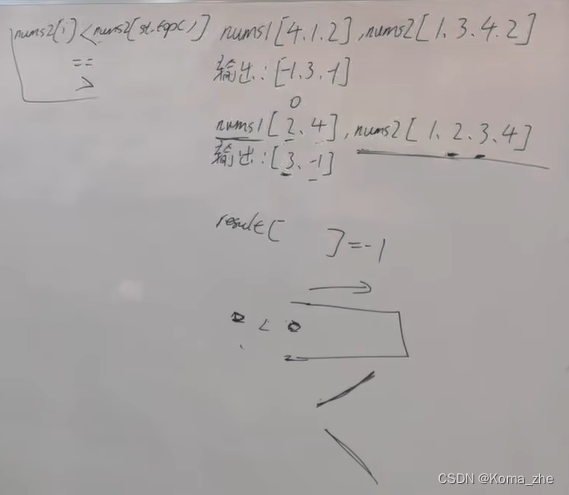 nums2[i] < nums2[st.top()]
==
>
nums1[4.1.2], nums2[1.3.4.2]
输出:[-1.3.-1]
0
nums1[2.4], nums2[1.2.3.4]
输出:[3.-1]
result[ ]=-1
< 0
CSDN @Koma_zhe